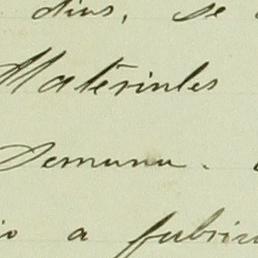 dias, se
Materiales
Semana.
a fabrica